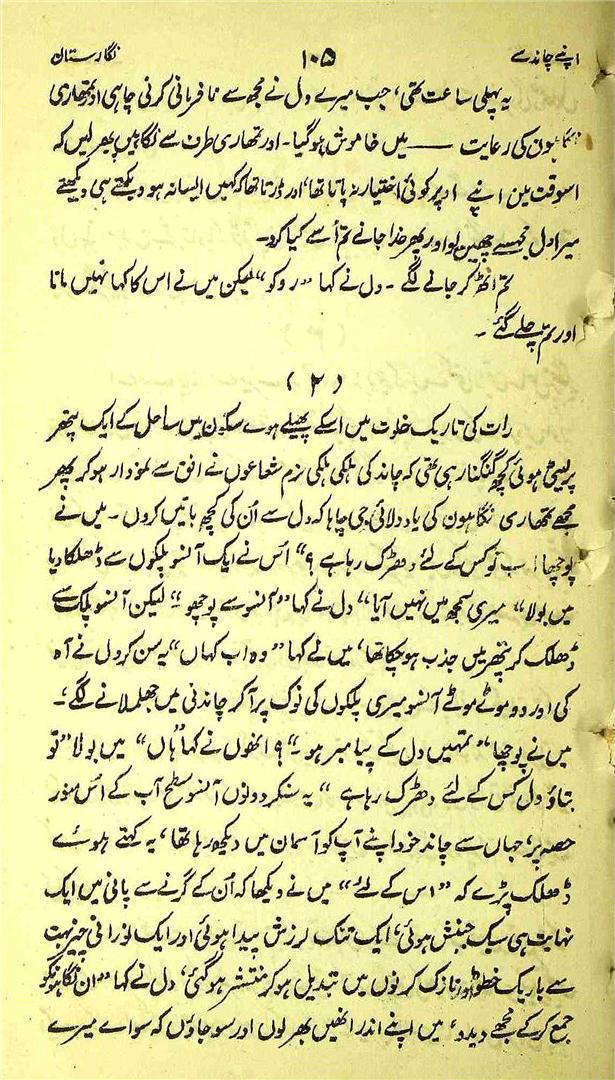 اپنے چاند سے ۱۰۵ نگارستان
یہ پہلی ساعت تھی، جب میرے دل نے مجھ سے نافرمانی کرنی چاہی اور تمھاری
نگاہون کی رعایت ـــــ میں خاموش ہو گیا۔ اور تمھاری طرف سے نگاہیں پھیر لیں کہ
اسوقت مین اپنے اوپر کوئی اختیار نہ پاتا تھا، اور ڈرتا تھا کہ کہیں ایسا نہ ہو دیکھتے ہی دیکھتے
میرا دل مجھسے چھین لو اور پھر خدا جانے تم اُسے کیا کرو۔
تم اُٹھ کر جانے لگے۔ دل نے کہا ”روکو“ لیکن میں نے اس کا کہا نہیں مانا
اور تم چلے گئے۔
(۲)
رات کی تاریک خلوت میں اسکے پھیلے ہوے سکون میں ساحل کے ایک پتھر
پر لیٹی ہوئی کچھ گنگنا رہی تھی کہ چاند کی ہلکی ہلکی نرم شعاعوں نے افق سے نمودار ہو کر پھر
مجھے تمھاری نگاہون کی یاد دلائی، جی چاہا کہ دل سے اُن کی کچھ باتیں کروں۔ میں نے
پوچھا اب تو کس کے لئے دھڑک رہا ہے؟“ اُس نے ایک آنسو پلکوں سے ڈھلکا دیا
میں بولا ”میری سمجھ میں نہیں آیا“ دل نے کہا ”آنسو سے پوچھو“ لیکن آنسو پلک سے
ڈھلک کر پتھر میں جذب ہو چکا تھا، میں نے کہا ”وہ اب کہاں“ یہ سن کر دل نے آہ
کی اور دو موٹے موٹے آنسو میری پلکوں کی نوک پر آکر چاندنی میں جھلملانے لگے۔
میں نے پوچھا ”تمہیں دل کے پیامبر ہو“؟ انھوں نے کہا ”ہاں“ میں بولا ”تو
بتاؤ دل کس کے لئے دھڑک رہا ہے“ یہ سنکر دونوں آنسو سطح آب کے اُس منور
حصہ پر، جہاں سے چاند خود اپنے آپ کو آسمان میں دیکھ رہا تھا، یہ کہتے ہوئے
ڈھلک پڑے کہ ”اس کے لئے“ میں نے دیکھا کہ اُن کے گرنے سے پانی میں ایک
نہایت ہی سبک جنبش ہوئی، ایک تنک لرزش پیدا ہوئی اور ایک نورانی چیز بہت
سے باریک خطوط اور نازک کرنوں میں تبدیل ہو کر منتشر ہو گئی، دل نے کہا ”ان نگاہونکو
جمع کر کے مجھے دیدو، میں اپنے اندر انھیں بھر لوں اور سو جاؤں کہ سواے میرے